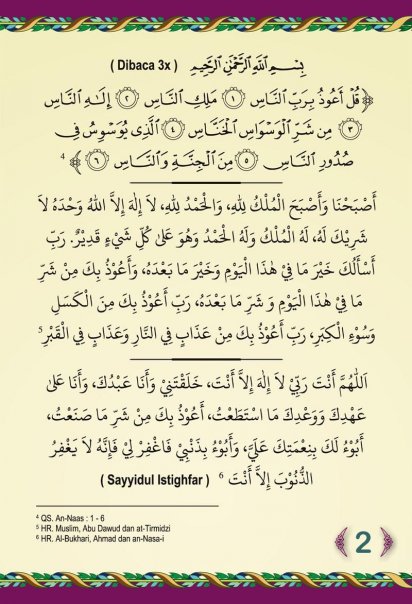 بِسْمِ اللهِ الرَّحْمٰنِ الرَّحِيْمِ ( Dibaca 3x )
﴿ قُلْ أَعُوْذُ بِرَبِّ النَّاسِ ١ مَلِكِ النَّاسِ ٢ إِلٰهِ النَّاسِ
٣ مِن شَرِّ الْوَسْوَاسِ الْخَنَّاسِ ٤ الَّذِى يُوَسْوِسُ فِى
صُدُوْرِ النَّاسِ ٥ مِنَ الْجِنَّةِ وَالنَّاسِ ٦ ﴾ 4
أَصْبَحْنَا وَأَصْبَحَ الْمُلْكُ لِلهِ، وَالْحَمْدُ لِلهِ، لاَ إِلٰهَ إِلاَّ اللهُ وَحْدَهُ لاَ
شَرِيْكَ لَهُ، لَهُ الْمُلْكُ وَلَهُ الْحَمْدُ وَهُوَ عَلَى كُلِّ شَيْءٍ قَدِيْرٌ. رَبِّ
أَسْأَلُكَ خَيْرَ مَا فِيْ هٰذَا الْيَوْمِ وَخَيْرَ مَا بَعْدَهُ، وَأَعُوْذُ بِكَ مِنْ شَرِّ
مَا فِيْ هٰذَا الْيَوْمِ وَ شَرِّ مَا بَعْدَهُ، رَبِّ أَعُوْذُ بِكَ مِنَ الْكَسَلِ
وَسُوْءِ الْكِبَرِ، رَبِّ أَعُوْذُ بِكَ مِنْ عَذَابٍ فِي النَّارِ وَعَذَابٍ فِي الْقَبْرِ. 5
اَللّٰهُمَّ أَنْتَ رَبِّيْ لاَ إِلٰهَ إِلاَّ أَنْتَ، خَلَقْتَنِيْ وَأَنَا عَبْدُكَ، وَأَنَا عَلَى
عَهْدِكَ وَوَعْدِكَ مَا اسْتَطَعْتُ، أَعُوْذُ بِكَ مِنْ شَرِّ مَا صَنَعْتُ،
أَبُوْءُ لَكَ بِنِعْمَتِكَ عَلَيَّ، وَأَبُوْءُ بِذَنْبِيْ فَاغْفِرْ لِيْ فَإِنَّهُ لاَ يَغْفِرُ
الذُّنُوْبَ إِلاَّ أَنْتَ 6 ( Sayyidul Istighfar )
4 QS. An-Naas : 1 - 6
5 HR. Muslim, Abu Dawud dan at-Tirmidzi
6 HR. Al-Bukhari, Ahmad dan an-Nasa-i
2